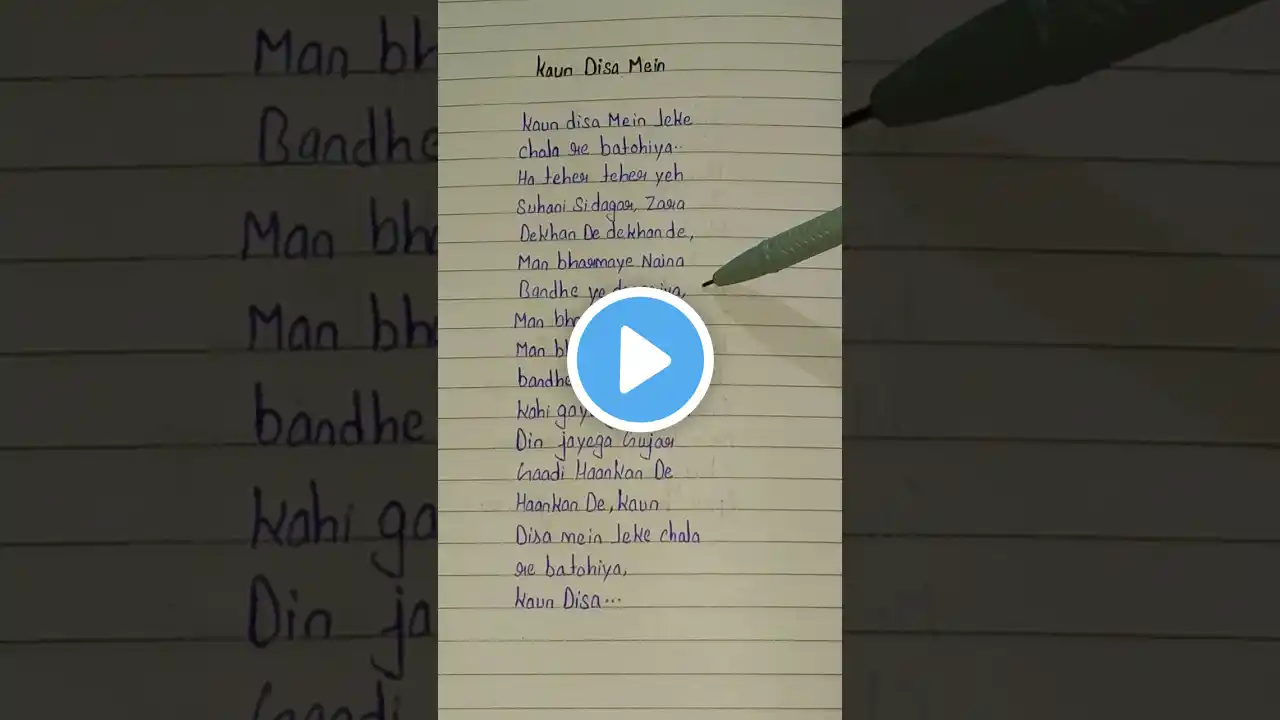 Kaun Disa Mein
Kaun disa Mein leke
chala re batohiya..
Ha teher teher yeh
Suhani Sidagar, Zara
Dekhan De dekhan de,
Man bharmaye Naina
Bandhe ye
Man
Man
bandhe
Kahi
Din jayega Gujar
Gaadi Haankan De
Haankan De, Kaun
Disa mein leke chala
re batohiya,
Kaun Disa...